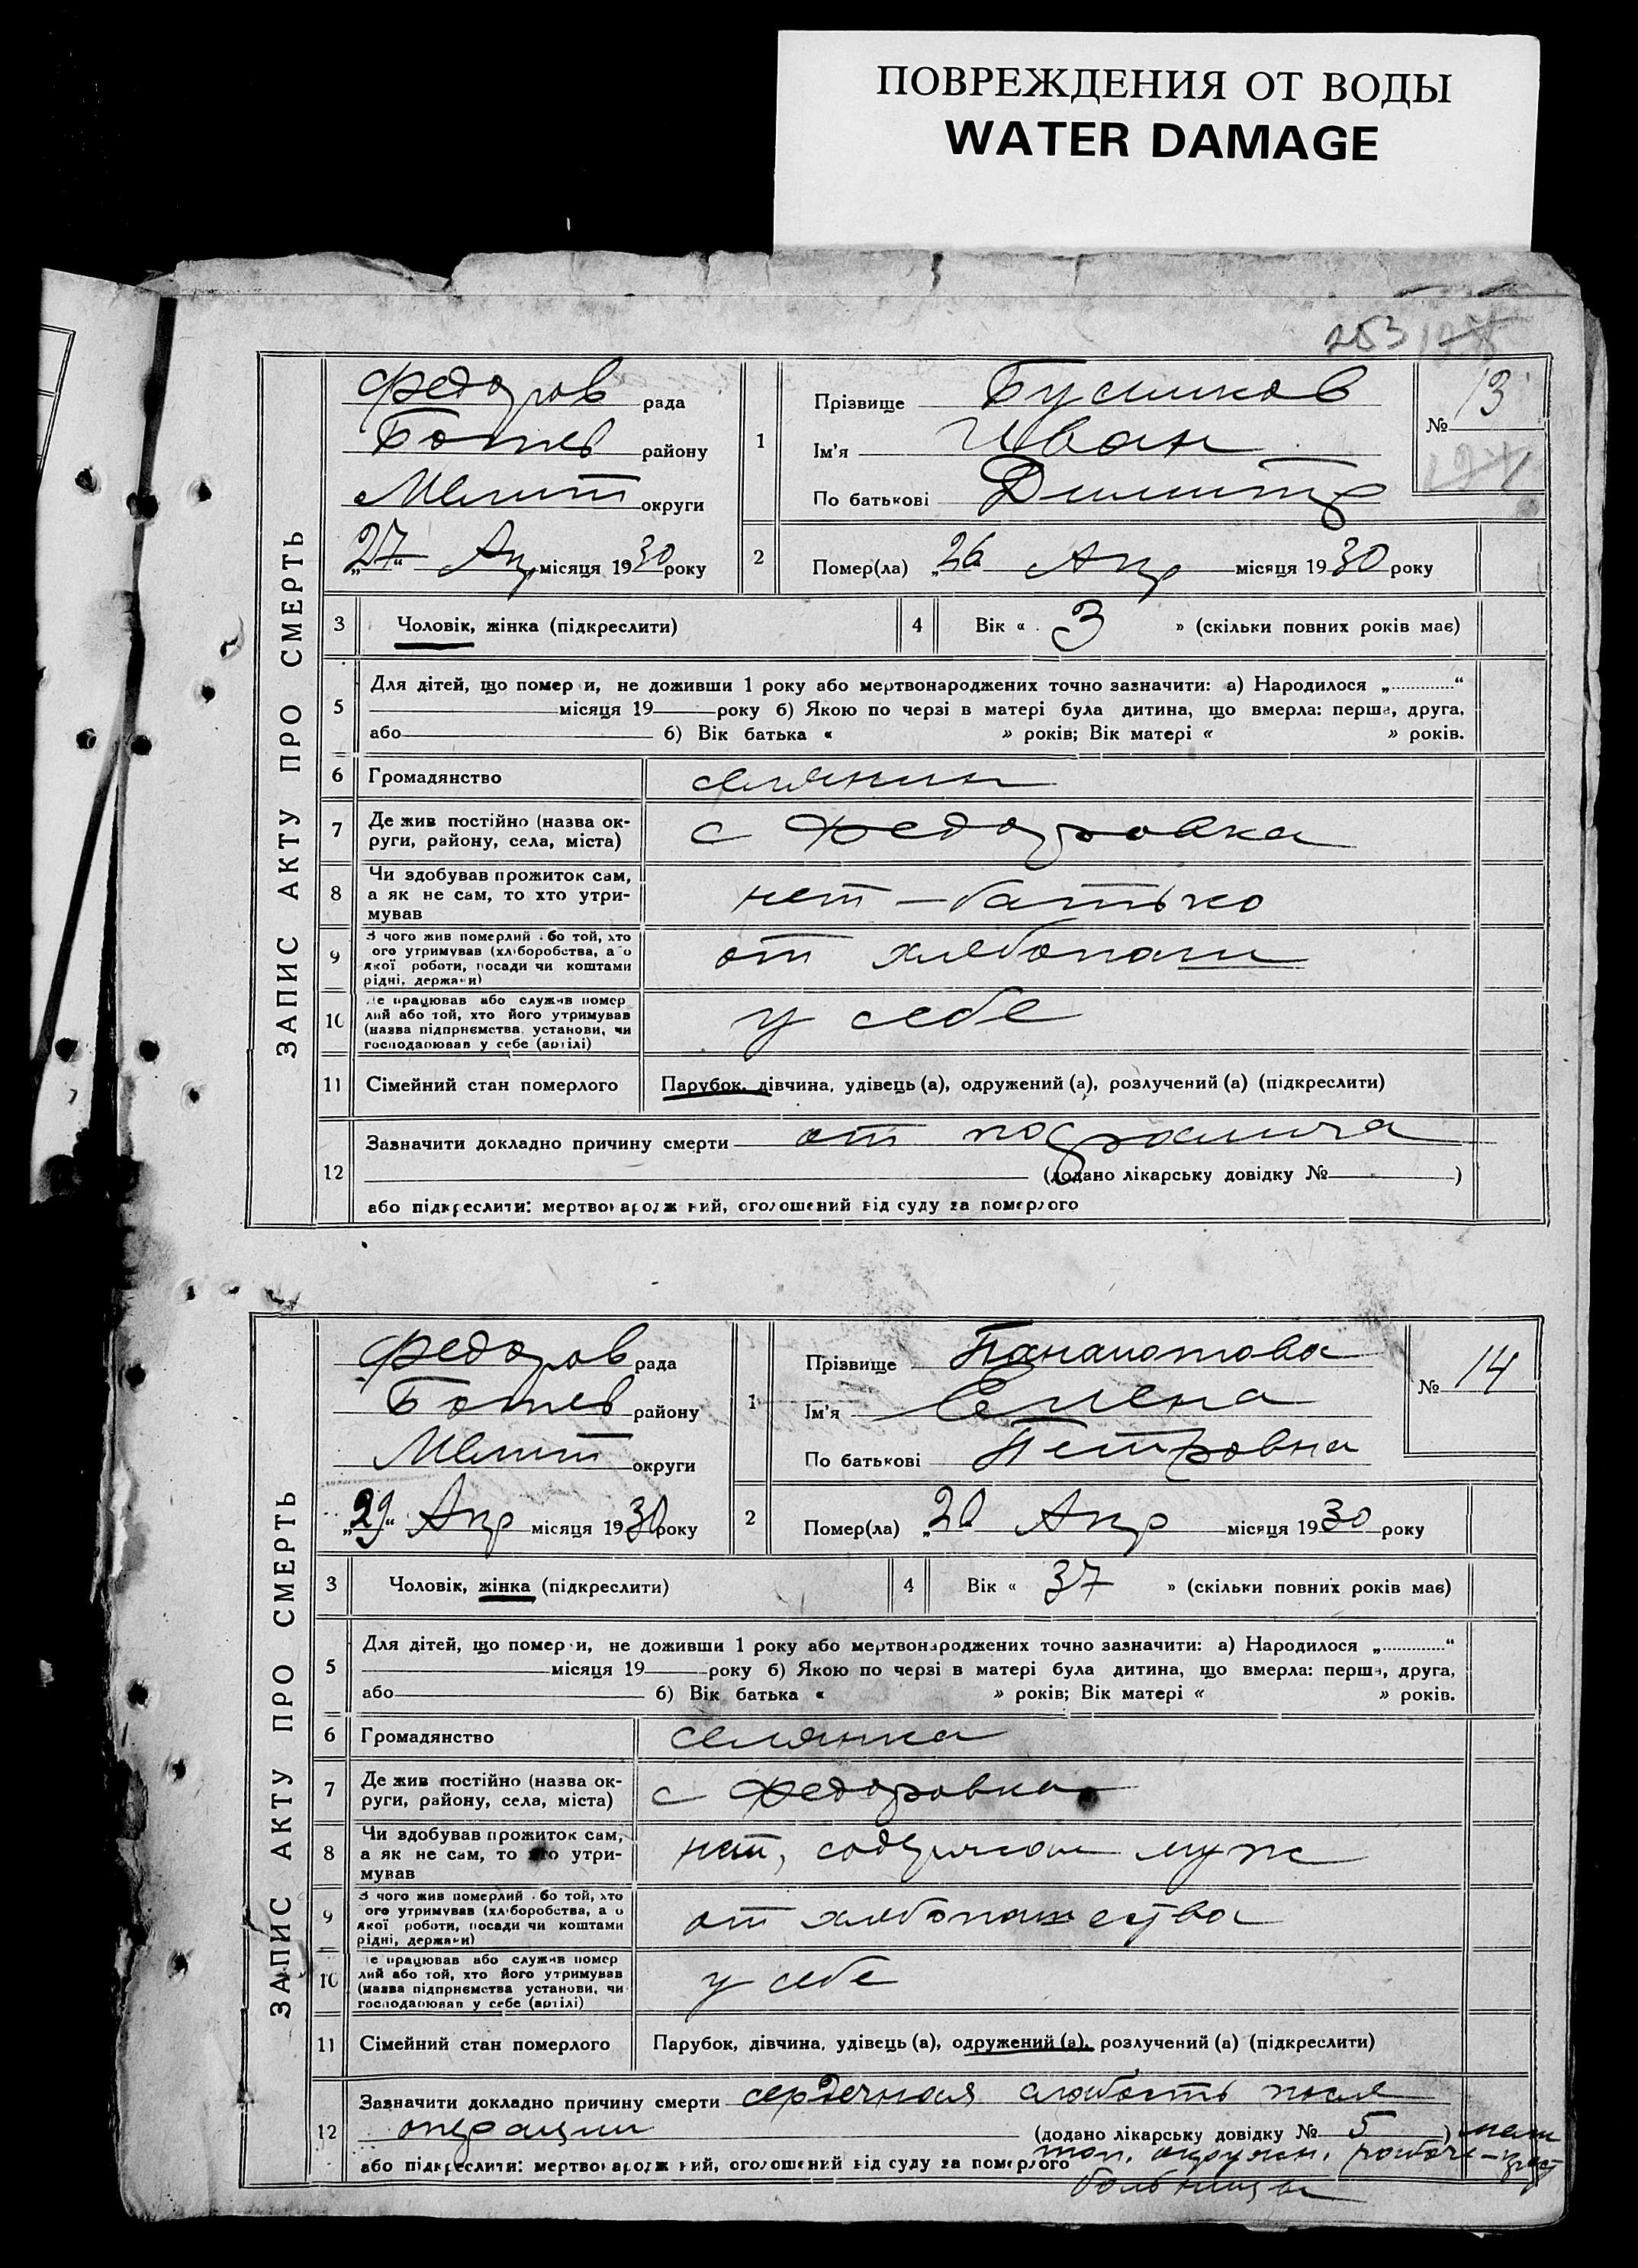 ПОВРЕЖДЕНИЯ ОТ ВОДЫ
WATER DAMAGE
253
ЗАПИС АКТУ ПРО СМЕРТЬ
Федоров рада
Ботев району
Мелит округи
„27“ Апр місяця 1930 року
1
Прізвище Бусшков
Ім'я Иван
По батькові Димитр
№ 13
2 Помер(ла) „26 Апр місяця 1930 року
3 Чоловік, жінка (підкреслити)
4 Вік « 3 » (скільки повних років має)
5 Для дітей, що помер и, не доживши 1 року або мертвонароджених точно зазначити: а) Народилося „ “
місяця 19 року б) Якою по черзі в матері була дитина, що вмерла: перша, друга,
або б) Вік батька « » років; Вік матері « » років.
6 Громадянство селянин
7 Де жив постійно (назва ок-
руги, району, села, міста) с Федоровка
8 Чи здобував прожиток сам,
а як не сам, то хто утри-
мував нет – батько
9 З чого жив померлий або той, хто
ого утримував (хліборобства, а о
якої роботи, посади чи коштами
рідні, держави) от хлебопаш
10 Де працював або служив помер
лий або той, хто його утримував
(назва підприємства установи, чи
господарював у себе (артілі) у себе
11 Сімейний стан померлого Парубок, дівчина, удівець (а), одружений (а), розлучений (а) (підкреслити)
12 Зазначити докладно причину смерти от
(додано лікарську довідку № )
або підкреслити: мертвонароджений, оголошений від суду за померлого
ЗАПИС АКТУ ПРО СМЕРТЬ
Федоров рада
Ботев району
Мелит округи
„29“ Апр місяця 1930 року
1
Прізвище Панаиотова
Ім'я Елена
По батькові Петровна
№ 14
2 Помер(ла) Апр місяця 1930 року
3 Чоловік, жінка (підкреслити)
4 Вік « 37 » (скільки повних років має)
5 Для дітей, що помер и, не доживши 1 року або мертвонароджених точно зазначити: а) Народилося „ “
місяця 19 року б) Якою по черзі в матері була дитина, що вмерла: перша, друга,
або б) Вік батька « » років; Вік матері « » років.
6 Громадянство селянка
7 Де жив постійно (назва ок-
руги, району, села, міста) с Федоровка
8 Чи здобував прожиток сам,
а як не сам, то хто утри-
мував нет, содержал муж
9 З чого жив померлий або той, хто
ого утримував (хліборобства, а о
якої роботи, посади чи коштами
рідні, держави) от хлебопашества
10 Де працював або служив помер
лий або той, хто його утримував
(назва підприємства установи, чи
господарював у себе (артілі) у себе
11 Сімейний стан померлого Парубок, дівчина, удівець (а), одружений (а), розлучений (а) (підкреслити)
12 Зазначити докладно причину смерти сердечная слабость после
операции (додано лікарську довідку № 5 )
або підкреслити: мертвонароджений, оголошений від суду за померлого окружн.
больницы